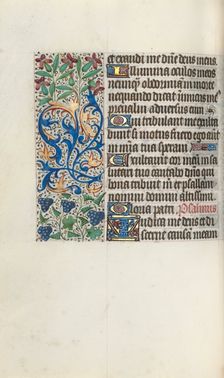 et exaudi me dñe deus meus.
Illumina oculos meos
ne unq̃ obdormiam in morte
nequando dicat inimicus me
prevalui adversus eum
Qui tribulant me exulta
bunt si motus fuero ego autẽ
in mĩa tua speravi
Exultavit cor meũ in sa
lutari tuo cantabo dño qui
bona tribuit m̃ et psallam
nomini domini altissimi.
Gloria patri. Psalmus
Judica me deus et di
scerne causã meam